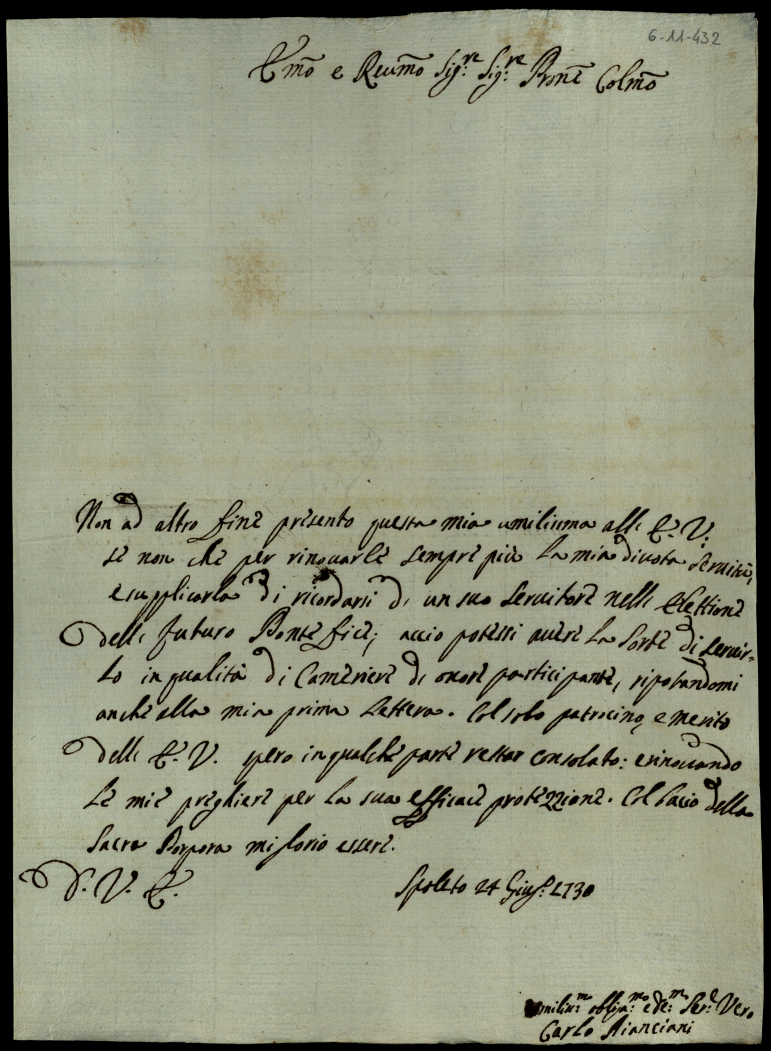 6-11-432
Emo e Reumo Sigre: Sigre: Prone Colmo
Non ad altro fine presento questa mia umilissma all' E. V.
se non che per rinovarle sempre più la mia divota servitù,
e supplicarla di ricordarsi di un suo servitore nell' Elettione
dell futuro Pontefice; acciò potessi avere la sorte di servir-
lo in qualità di Cameriere di onore participante, riportandomi
anche alla mia prima lettera. Col solo patrocino, e merito
dell' E. V. spero in qualche parte restar consolato: e rinovando
le mie preghiere per la sua efficace protezzione. Col bacio della
Sacra Porpora mi glorio essere.
D. V. E.
Spoleto 24 Giug: 1730
Umilissm: obligmo: e dem: Ser: Vero
Carlo